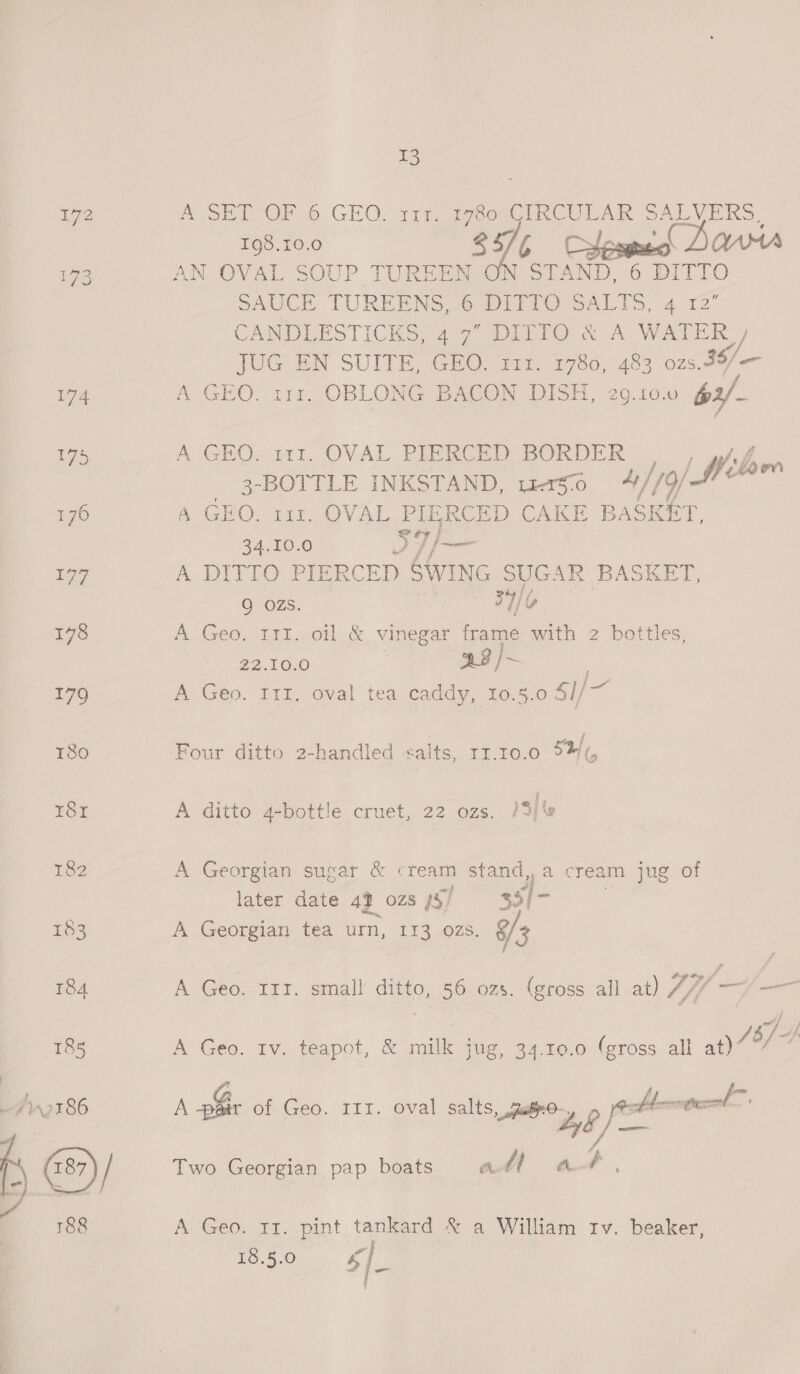 13
172 A SET OF 6 GEO. III. 1780 CIRCULAR SALVERS,
198.10.0 35/6 Davis
173 AN OVAL SOUP TUREEN ON STAND, 6 DITTO
SAUCE TUREENS, 6 DITTO SALTS, 4 12"
CANDLESTICKS, 4 7" DITTO & A WATER
JUG EN SUITE, GEO. III. 1780, 483 ozs. 35/-
174 A GEO. III. OBLONG BACON DISH, 29.10.0 62/-
175 A GEO. III. OVAL PIERCED BORDER
3-BOTTLE INKSTAND, 11.15.0 41//19/- Wilson
176 A GEO. III. OVAL PIERCED CAKE BASKET,
34.10.0 57/-
177 A DITTO PIERCED SWING SUGAR BASKET,
9 ozs. 37/6
178 A Geo. III. oil & vinegar frame with 2 bottles,
22.10.0 28/-
179 A Geo. III. oval tea caddy, 10.5.0 51/-
180 Four ditto 2-handled salts, 11.10.0 52/6
181 A ditto 4-bottle cruet, 22 ozs. 13/6
182 A Georgian sugar & cream stand, a cream jug of
later date 4¾ ozs 15/ 35/-
183 A Georgian tea urn, 113 ozs. 8/3
184 A Geo. III. small ditto, 56 ozs. (gross all at)
185 A Geo. IV. teapot, & milk jug, 34.10.0 (gross all at) 15/-
186 A pair of Geo. III. oval salts,
187 / Two Georgian pap boats all at
188 A Geo. II. pint tankard & a William IV. beaker,
18.5.0 5/-